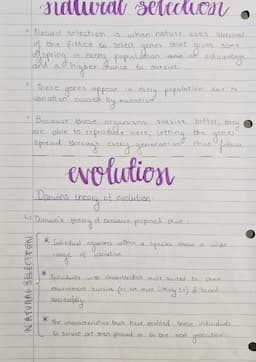 natural selection
Natural selection is when nature uses survival
of the fittest to select genes that gives some
offspring in every population an advantage
and a higher chance to survive.
These genes appear in every population due to
variation caused by mutation
Because these organisms survive better, they
are able to reproduce more, letting the genes
spread through every generation that follow.
evolution
Darwin's theory of evolution:
Darwin's theory of evolution proposed that:
NATURAL SELECTION
* Individual organisms within a species show a wide
range of variation
* Individuals with characteristics most suited to their
environment survive (or are more likely to) & breed
successfully
* The characteristics that have enabled these individuals
to survive are then passed on to the next generation